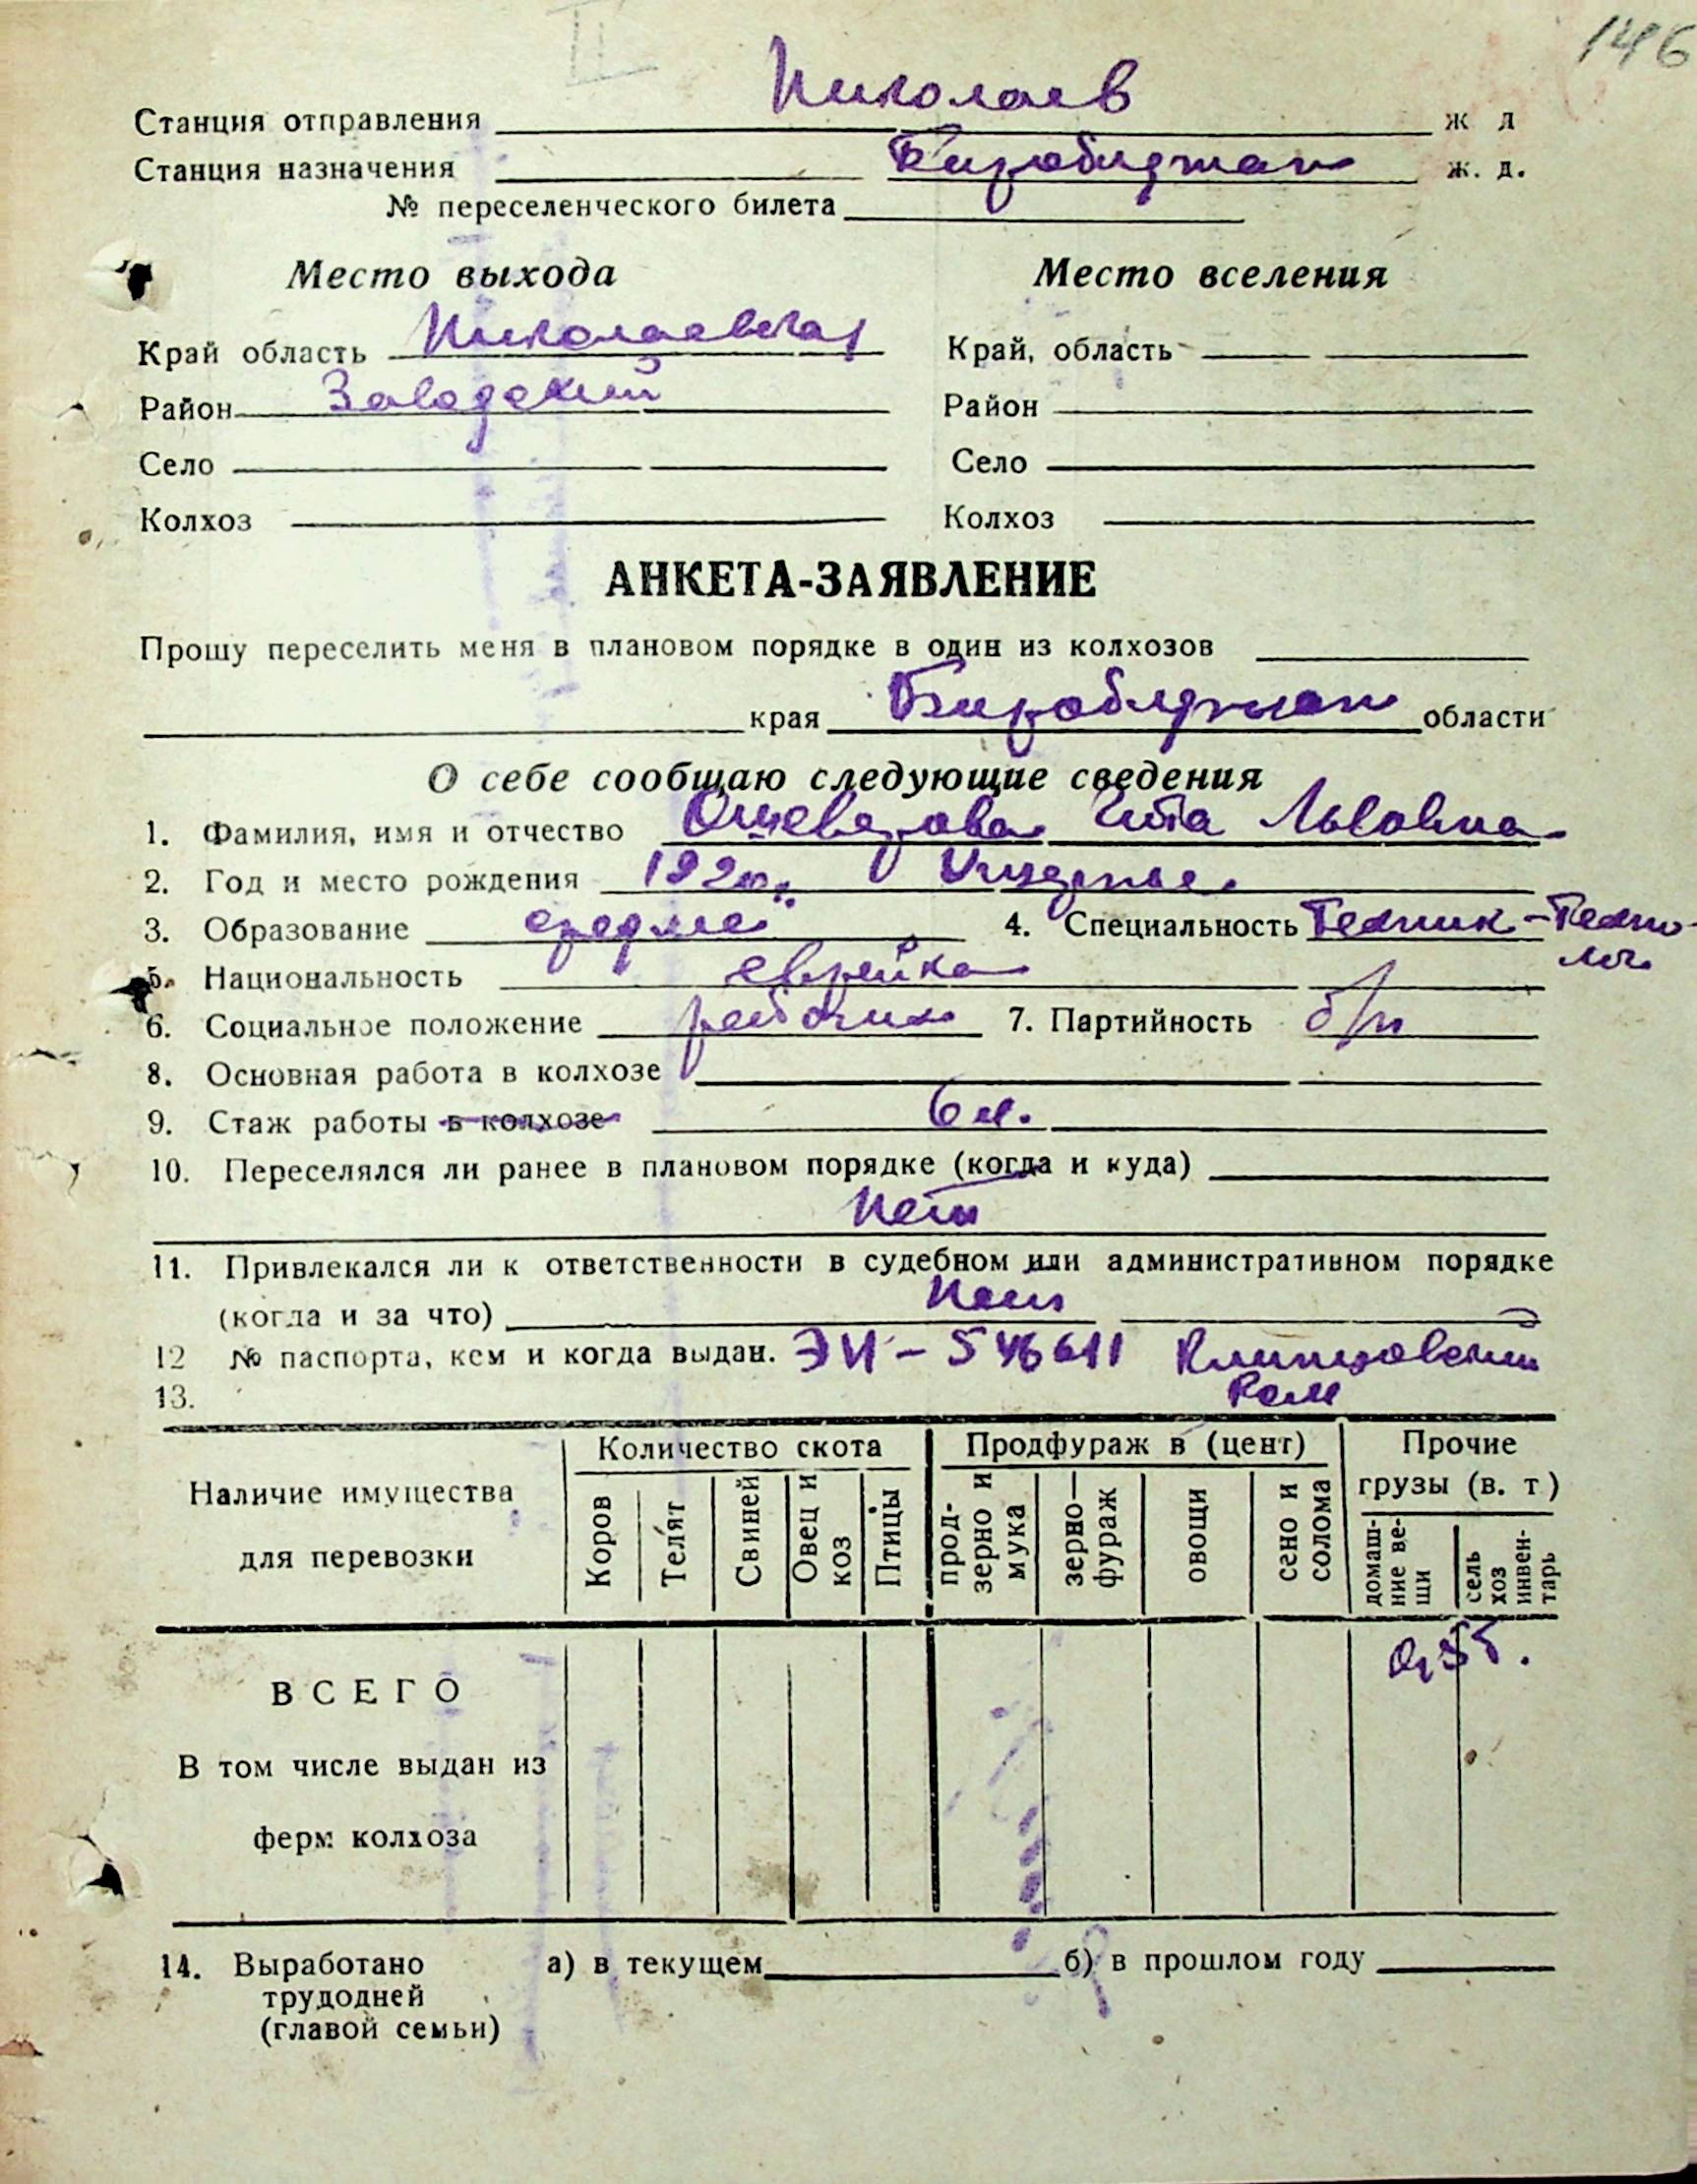 146
II
Станция отправления Николаев ж д
Станция назначения Биробиджан ж. д.
№ переселенческого билета
Место выхода Место вселения
Край область Николаевская Край, область
Район Заводский Район
Село Село
Колхоз Колхоз
АНКЕТА-ЗАЯВЛЕНИЕ
Прошу переселить меня в плановом порядке в один из колхозов
края Биробиджан области
О себе сообщаю следующие сведения
1. Фамилия, имя и отчество Гита Львовна
2. Год и место рождения 1920г.
3. Образование среднее 4. Специальность Техник-Техно-
лог
5. Национальность еврейка
6. Социальное положение 7. Партийность б/п
8. Основная работа в колхозе
9. Стаж работы в колхозе 6 л.
10. Переселялся ли ранее в плановом порядке (когда и куда)
Нет
11. Привлекался ли к ответственности в судебном или административном порядке
(когда и за что) Нет
12 № паспорта, кем и когда выдан. 546611
13.
Наличие имущества для перевозки
Количество скота Продфураж в (цент) Прочие грузы (в. т)
Коров Телят Свиней Овец и коз Птицы прод-зерно и мука зерно—фураж овощи сено и солома домаш-ние ве-щи сель хоз инвен-тарь
ВСЕГО
В том числе выдан из
ферм колхоза
14. Выработано а) в текущем б) в прошлом году
трудодней
(главой семьи)